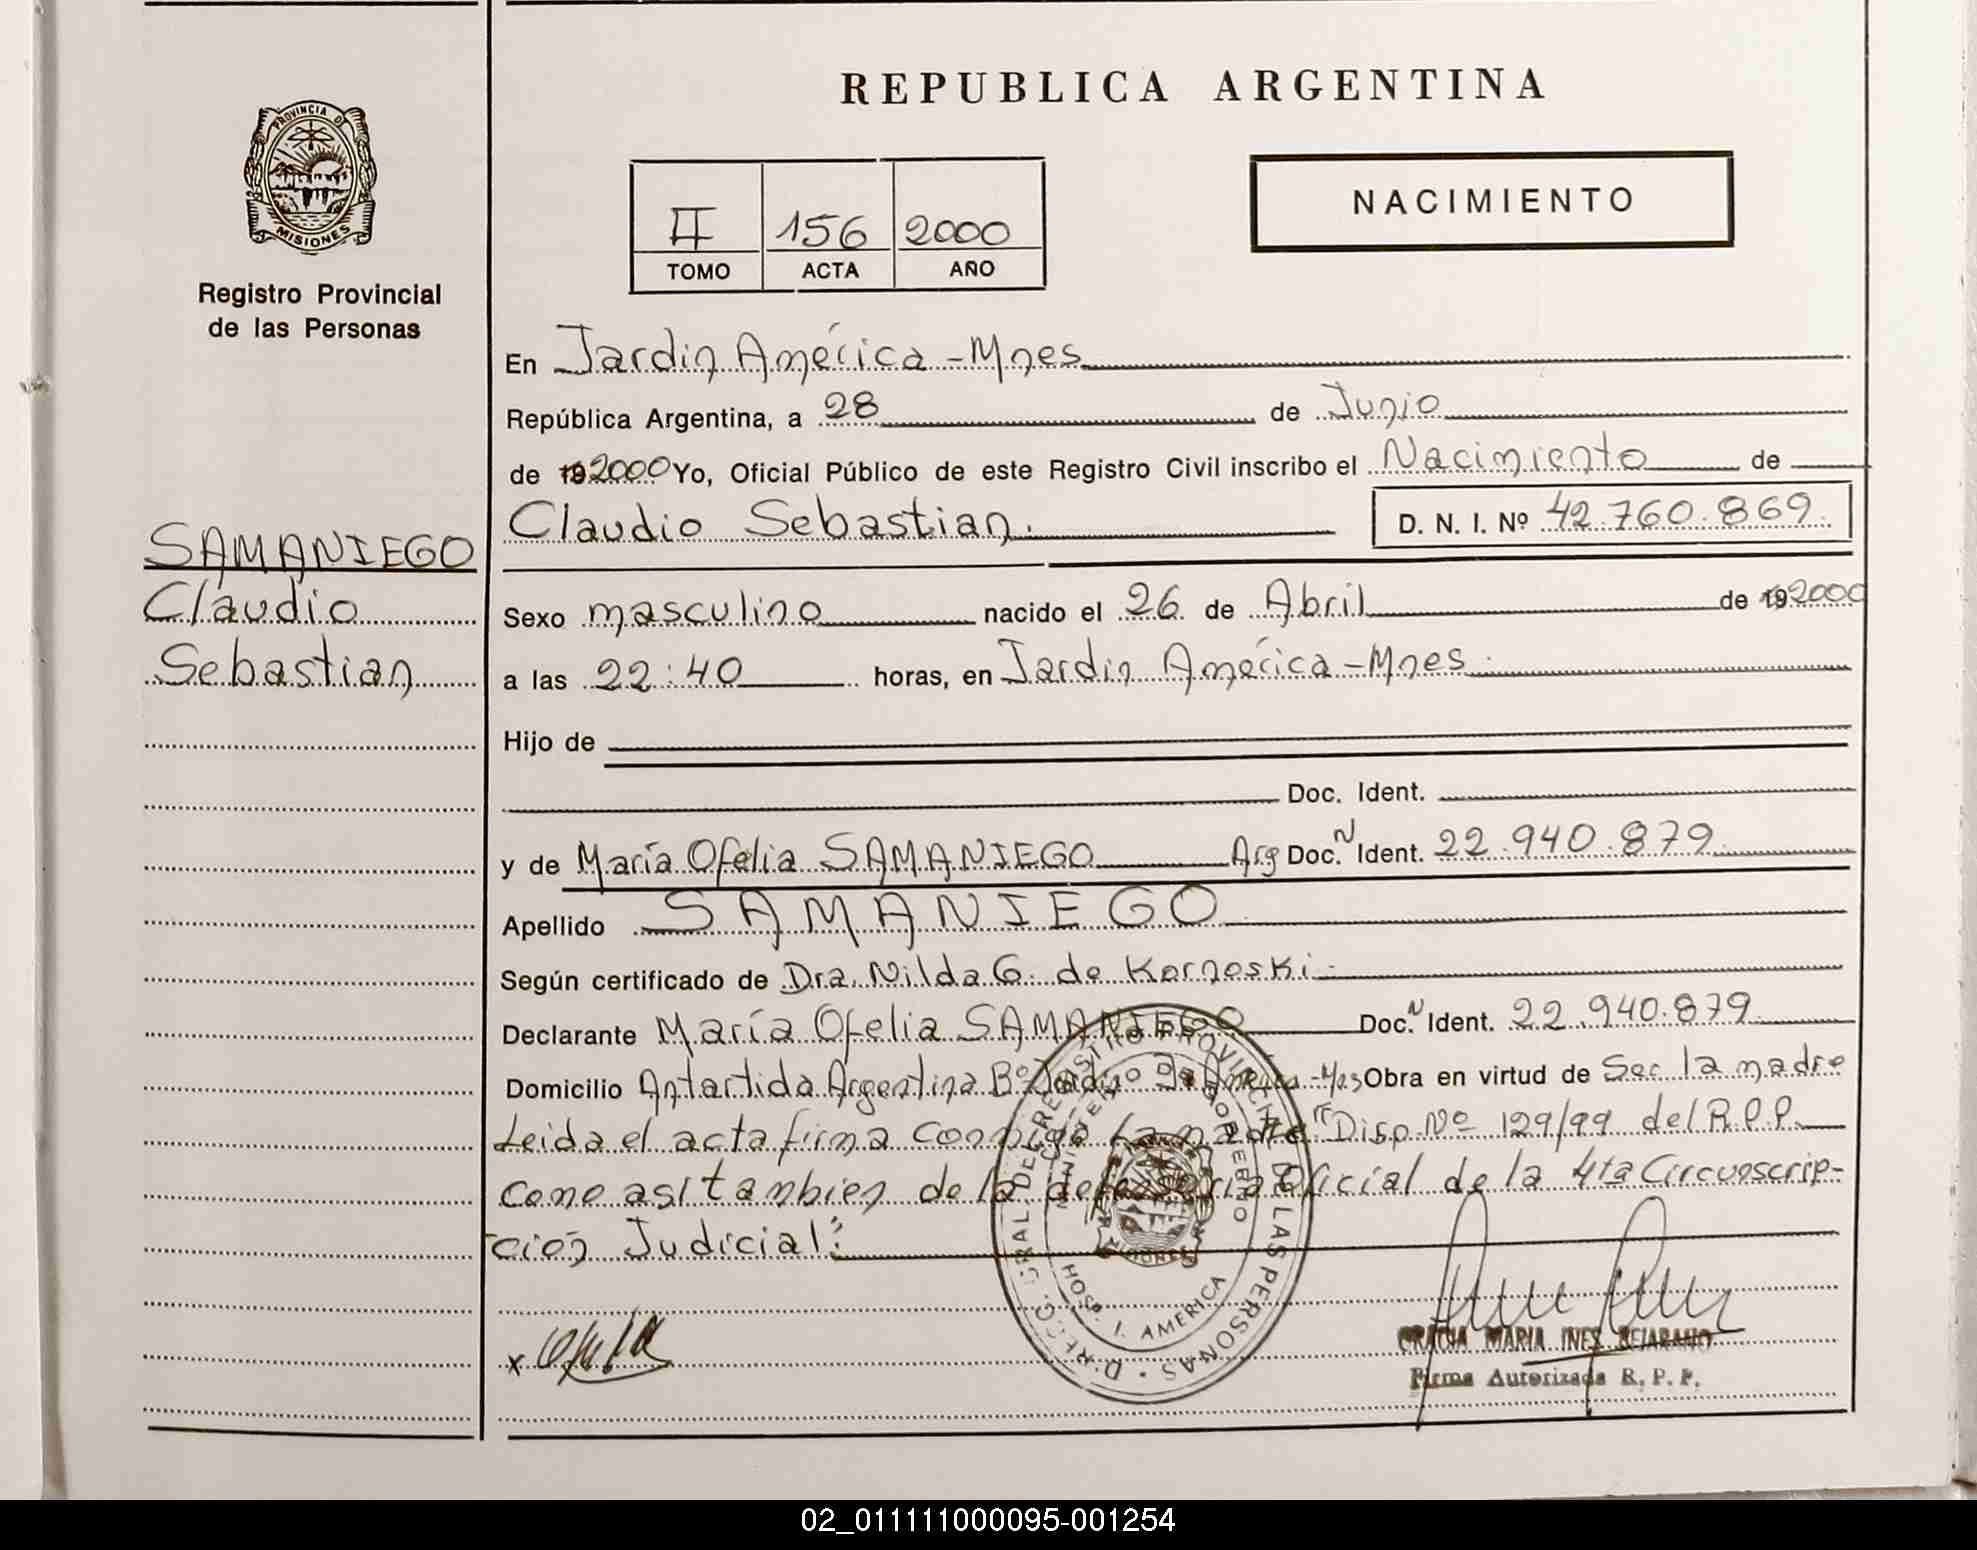 REPUBLICA ARGENTINA
PROVINCIA DE
MISIONES
Registro Provincial
de las Personas
NACIMIENTO
II 156 2000
TOMO ACTA AÑO
En Jardin América - Mnes
República Argentina, a 28 de Junio
de 19 2000 Yo, Oficial Público de este Registro Civil inscribo el Nacimiento de
Claudio Sebastian. D. N. I. Nº 42.760.869.
SAMANIEGO
Claudio
Sebastian
Sexo masculino nacido el 26 de Abril de 19 2000
a las 22:40 horas, en Jardin América - Mnes.
Hijo de
Doc. Ident.
y de María Ofelia SAMANIEGO Arg Doc. N Ident. 22.940.879
Apellido SAMANIEGO
Según certificado de Dra. Nilda G. de Korneski
Declarante María Ofelia SAMANIEGO Doc. N Ident. 22.940.879
Domicilio Antartida Argentina Bº Jardin J. América - Mnes Obra en virtud de Ser la madre
Leida el acta firma conmigo la madre "Disp. Nº 129/99 del R.P.P.
como asi tambien de la defensoria Oficial de la 4ta Circunscrip-
ción Judicial".
REGISTRO PROVINCIAL DE LAS PERSONAS
MINISTERIO DE GOBIERNO
HOSP. J. AMERICA
MISIONES
x Ofelia
MARIA INES BEJARANO
Firma Autorizada R. P. P.
02_011111000095-001254